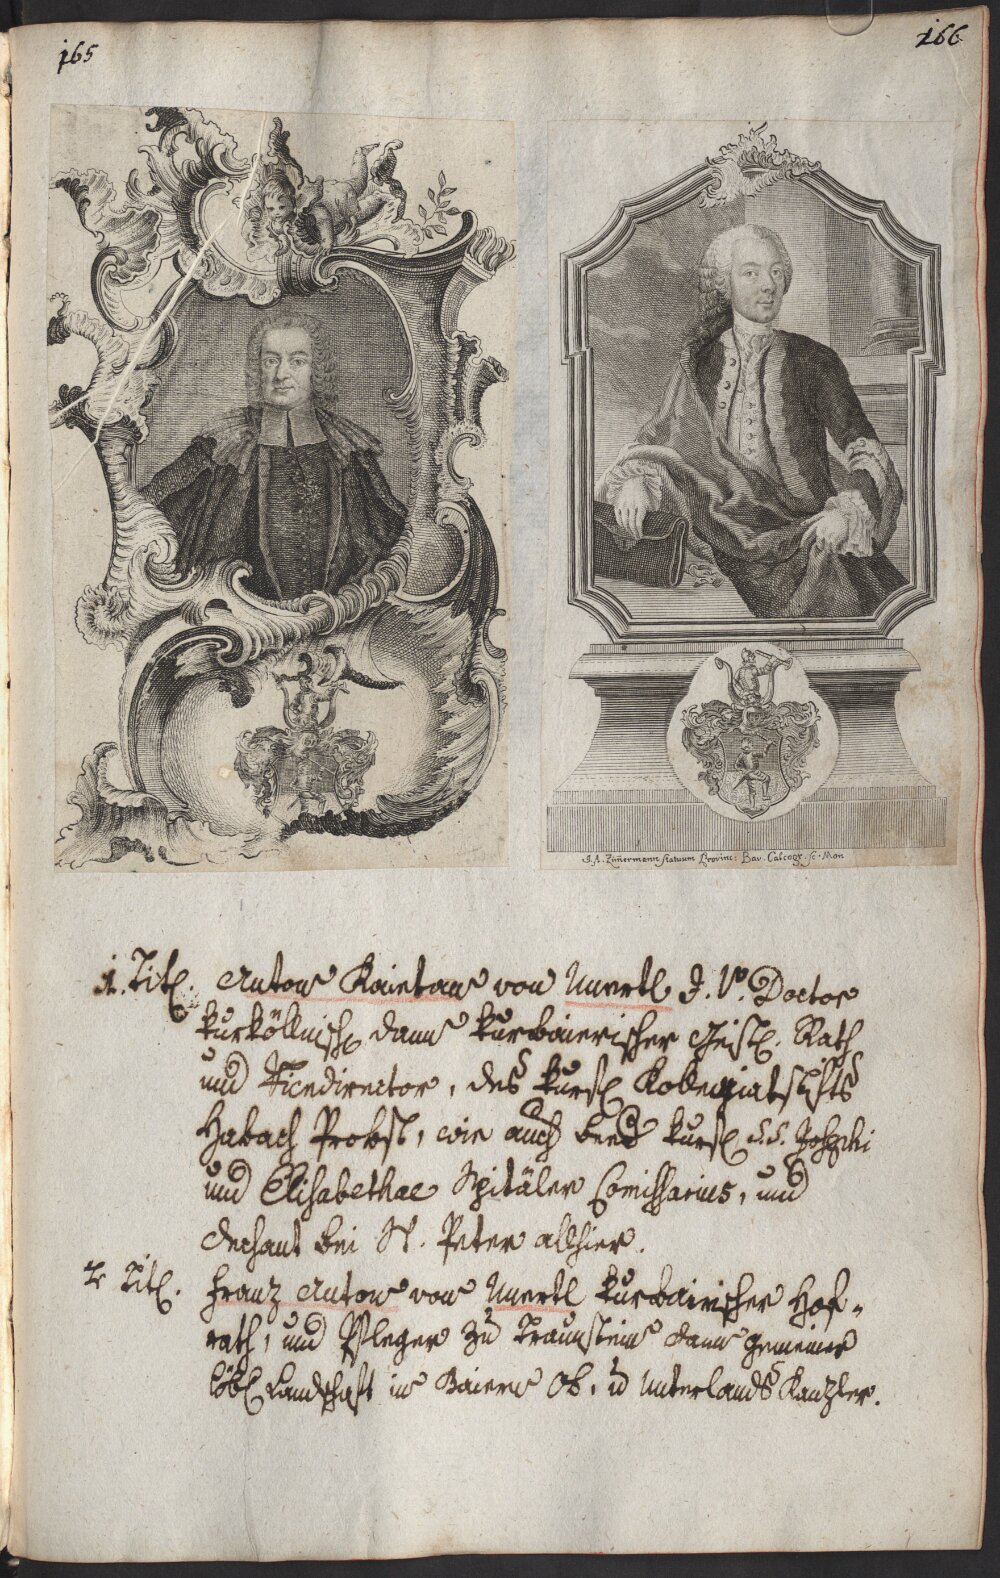 165
166
J. A. Zimmermann statuum Provinc: Bav. Calcogr. sc. Mon
1. Titl. Anton Kaietan von Unertl J. V. Doctor
kurkölknisch dann kurbaierischer Geistl. Rath
und Vicedirector, des kurfl Kollegiatstifts
Habach Probst, wie auch beed kurfl S.S. Josephi
und Elisabethae Spitäler Comissarius, und
dechant bei St. Peter allhier.
2 Titl. Franz Anton von Unertl kurbairischer Hof-
rath, und Pfleger zu Traunstein dann gemeiner
löbl Landschaft in Baiern Ob. u Unterlands Kanzler.